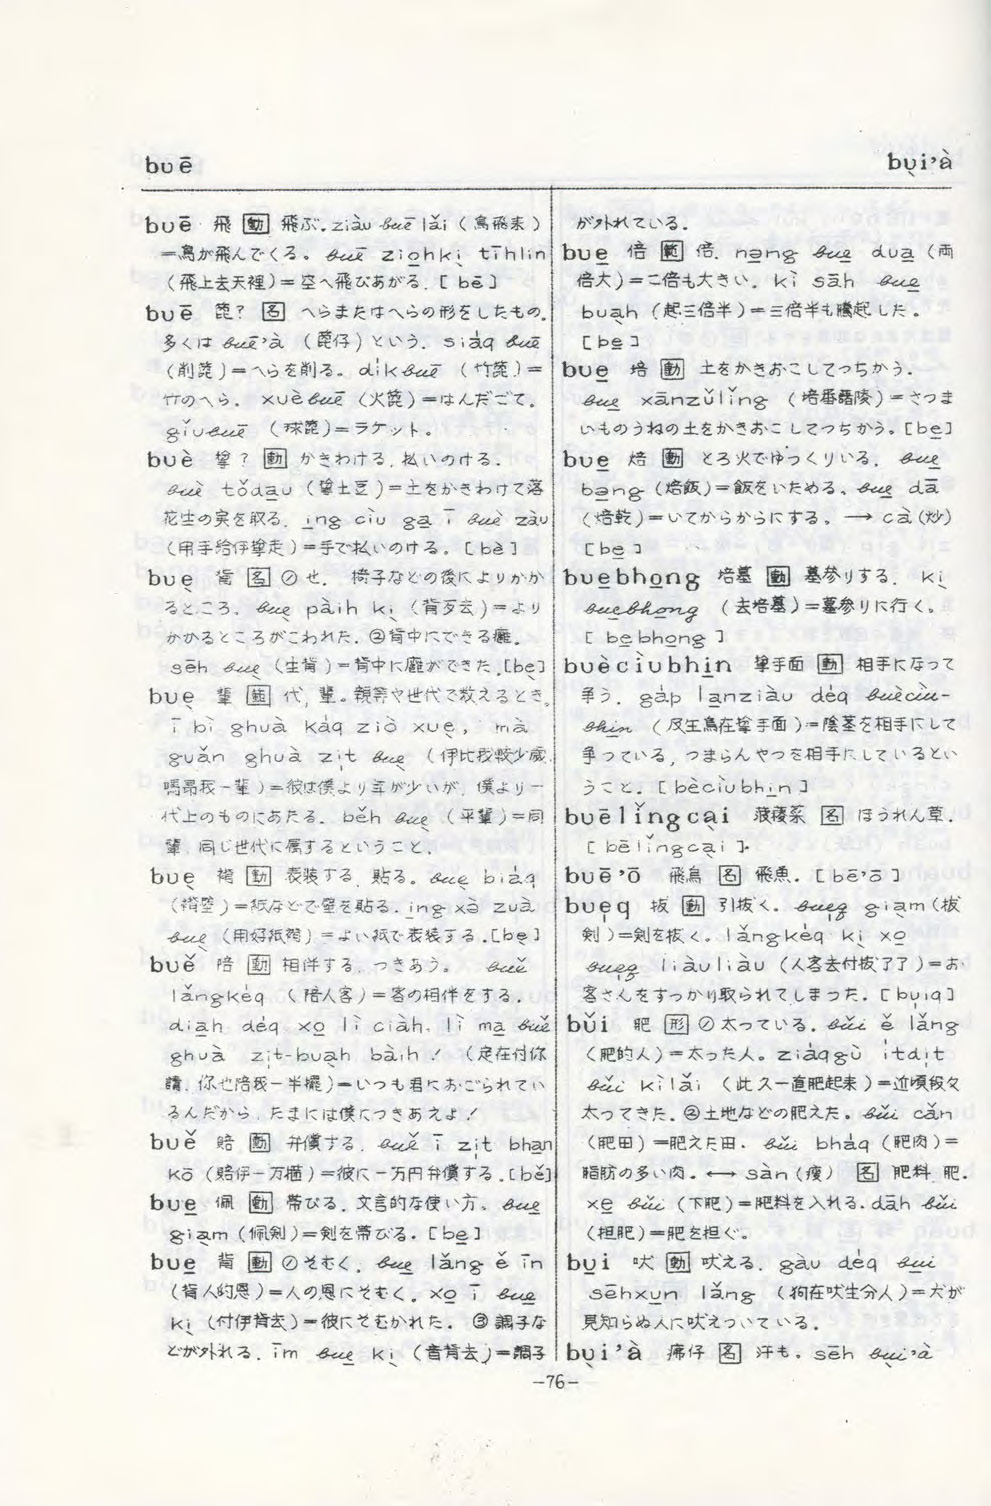 buē
bu̱i’à
buē 飛 動 飛ぶ. ziàu buē lǎi (鳥飛来)
=鳥が飛んでくる。buē ziohkị tīhlin
(飛上去天裡)=空へ飛びあがる.[bē]
buē 箆? 名 へらまたはへらの形をしたもの.
多くは buē’à (箆仔) という. siáq buē
(削箆)=へらを削る。dik buē (竹箆)=
竹のへら. xuè buē (火箆)=はんだごて.
giǔ buē (球箆)=ラケット。
buè 掰? 動 かきわける.払いのける.
buè tǒdau (掰土豆)=土をかきわけて落
花生の実を取る. ing cìu ga ī buè zàu
(用手給伊掰走)=手で払いのける。[bè]
buẹ 背 名 ①せ. 椅子などの後によりかか
るところ. buẹ pàih kị (背歹去)=より
かかるところがこわれた. ②背中にできる癰.
sēh buẹ (生背)=背中に癰ができた.[bẹ]
buẹ 輩 代, 輩。親等や世代で数えるとき.
ī bì ghuà káq ziò xuẹ, mà
guǎn ghuà zịt buẹ (伊比我較少歲,
嗎昴我一輩)=彼は僕より年が少いが, 僕より一
代上のものにあたる. běh buẹ (平輩)=同
輩, 同じ世代に属するということ.
buẹ 褙 動 表装する, 貼る。buẹ biáq
(褙壁)=紙などで壁を貼る. ing xà zuà
buẹ (用好紙褙)=よい紙で表装する.[bẹ]
buě 陪 動 相伴する, つきあう。buě
lǎngkéq (陪人客)=客の相伴をする.
diah déq xo lì ciàh, lì ma buě
ghuà zịt-buah bàih! (定在付你
請, 你也陪我一半擺)=いつも君におごられてい
るんだから, たまには僕につきあえよ!
buě 賠 動 弁償する. buě ī zịt bhan
kō (賠伊一万箍)=彼に一万円弁償する.[bě]
bue 佩 動 帯びる. 文言的な使い方。bue
giạm (佩剣)=剣を帯びる. [be]
bue 背 動 ①そむく. bue lǎng ě īn
(背人的恩)=人の恩にそむく。xo ī bue
kị (付伊背去)=彼にそむかれた. ②調子な
どが外れる. īm bue kị (音背去)=調子
が外れている.
bue 倍 倍. nạng bue dua (両
倍大)=二倍も大きい. kì sāh bue
buạh (起三倍半)=三倍半も騰起した。
[be]
bue 培 動 土をかきおこしてつちかう.
bue xānzǔlǐng (培番藷陵)=さつま
いものうねの土をかきおこしてつちかう。[be]
bue 焙 動 とろ火でゆっくりいる. bue
bạng (焙飯)=飯をいためる。bue dā
(焙乾)=いてからからにする. → cà (炒)
[be]
buebhong 培墓 動 墓参りする. kị
buebhong (去培墓)=墓参りに行く。
[bebhong]
buècìubhin 掰手面 動 相手になって
争う. gáp lạnziàu déq buècìu-
bhin (及生鳥在掰手面)=陰茎を相手にして
争っている, つまらんやつを相手にしているとい
うこと. [bècìubhin]
buēlǐngcại 菠薐菜 名 ほうれん草.
[bēlǐngcại]
buē’ō 飛烏 名 飛魚. [bē’ō]
bueq 拔 動 引抜く. bueq giạm (拔
剣)=剣を抜く。lǎngkéq kị xo
bueq liàuliàu (人客去付拔了了)=お
客さんをすっかり取られてしまった. [buiq]
bǔi 肥 形 ①太っている. bǔi ě lǎng
(肥的人)=太った人。ziáqgù itdịt
bǔi kìlǎi (此久一直肥起来)=近頃段々
太ってきた. ②土地などの肥えた。bǔi cǎn
(肥田)=肥えた田. bǔi bháq (肥肉)=
脂肪の多い肉. ←→ sàn (瘦) 名 肥料, 肥.
xe bǔi (下肥)=肥料を入れる. dāh bǔi
(担肥)=肥を担ぐ。
bui 吠 動 吠える. gàu déq bui
sēhxun lǎng (狗在吠生分人)=犬が
見知らぬ人に吠えついている.
bụi’à 疿仔 名 汗も. sēh bụi’à
-76-